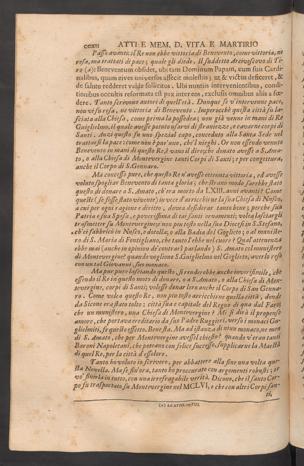 ccxxii ATTI E MEM. D. VITA E MARTIRIO
Passo avante: il Re non ebbe vittoria di Benevento, come vittoria, ne
resa, ma trattati di pace; quale gli diede. Il suddetto Arcivescovo di Ti-
ro (a): Beneventum obsidet, ubi tum Dominum Papam, cum suis Cardi-
nalibus, quam cives universos affecit molestiis; ut & victus deficeret, &
de salute redderet vulgo sollicitos. Ubi nuntiis intervenientibus, condi-
tionibus occultis reformata est pax interea, exclusis omnibus aliis a foe-
dere. Tanto scrivono autori di quell'età. Dunque se v'intervenne pace,
non vi fu resa, nè vittoria di Benevento. Imperocchè quella città fu la-
sciata alla Chiesa, come prima la possedea; non già venne in mani di Re
Guglielmo, il quale avesse potuto usarvi di straniezze, e cavarne corpi di
Santi. Anzi questo fu uno special capo, conceduto alla Santa Sede nel
trattarsi la pace: come uno è poi uno, che'l nieghi. Or non essendo venuta
Benevento in mani di questo Re; è vano il dire, che donato avesse a S. Ama-
to, o alla Chiesa di Montevergine tanti Corpi di Santi; e per congettura,
anche il Corpo di S. Gennaro.
Ma concesso pure, che questo Re n'avesse ottenuta vittoria, ed avesse
voluto spogliar Benevento di tanta gloria; che stesso modo sarebbe stato
questo di donare a S. Amato, ch'era morto da XXIII. anni avanti? Come
questi (se fosse stato vivente) in vece d'arricchirne la sua Chiesa di Nusco,
a cui per ogni ragione e divino, dovea desiderar tanto bene; perchè sua
Patria e sua Sposa, e poverissima di tai santi ornamenti; volea lasciargli
trasmettere su Montevergine; non più tosto nella sua Diocesi in S. Stefano,
ch'ei fabbricò in Nusco, o dirsela, o alla Badia del Goglieto; o al muniste-
ro di S. Maria di Fontigliano, che tanto l'ebbe nel cuore? Qual attenenza
ebbe mai (anche in opinion di contrarj parlando) S. Amato col munistero
di Montevergine? quando vogliono S. Guglielmo nel Goglieto, averlo reso
con un tal Giovanni, suo monaco.
Ma pur puro lasciando questo, si rendrebbe anche inverisimile, che
essendo il Re in questo moto di donare, o a S. Amato, o alla Chiesa di Mon-
tevergine, corpi di Santi; volesse donar loro anche il Corpo di San Genna-
ro. Come volea questo Re, non più tosto arricchirne quella città, donde
da Sicone era stato tolto; città sua e capitale del Regno di qua dal Faro?
che un munistero, una Chiesa di Montevergine? Mi si dirà il propenso
amore, che portava ereditario da suo Padre Ruggieri, verso i monaci Gu-
glielmiti, fe questo effetto. Bene sta. Ma ad istanza di niun monaco, ne men
di S. Amato, che per Montevergine avessil chiesto? quando v'eran tanti
Baroni Napoletani, che potean con felice successo, supplicarne la Maestà
di quel Re, per la città d'essi loro.
Tanto ho voluto io scrivere, per abbattere alla fine una volta que-
sta Novella. Ma se sin'ora, tanto ho procurato con argomenti robusti; ir-
vò sinirla in tutto, con una irrefragabile verità. Dicono, che il santo Cor-
po fu trasportato su Montevergine nel MCLVI, e che con altri Corpi san-
ti,